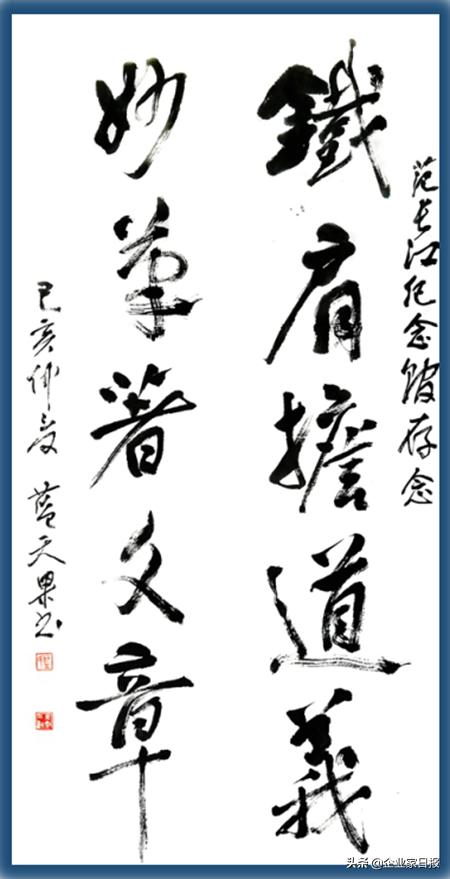 范长江纪念馆存念
鐵肩擔道義
妙筆著文章
己亥仲夏 蓝天果书
头条 @企业家日报